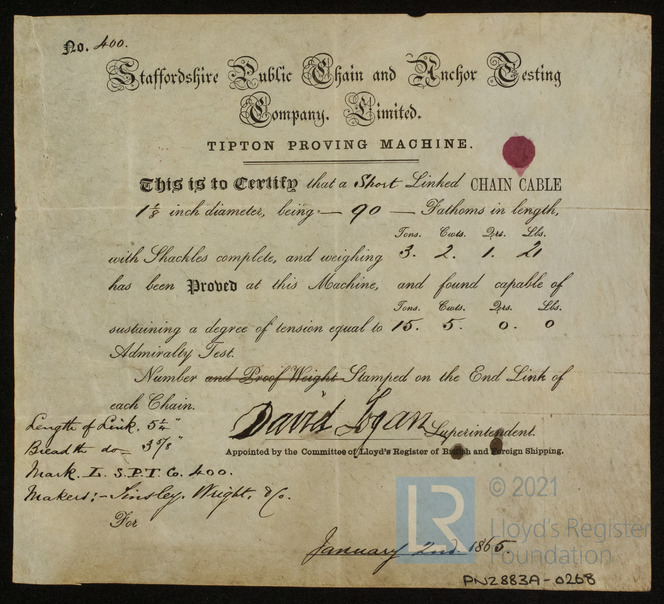 No. 400.
Staffordshire Public Chain and Anchor Testing
Company. Limited.
TIPTON PROVING MACHINE.
This is to Certify that a Short Linked CHAIN CABLE
1 1/8 inch diameter, being — 90 — Fathoms in length,
Tons. Cwts. Qrs. Lbs.
with Shackles complete, and weighing 3. 2. 1. 21
has been Proved at this Machine, and found capable of
Tons. Cwts. Qrs. Lbs.
sustaining a degree of tension equal to 15. 5. 0. 0
Admiralty Test.
Number and Proof Weight Stamped on the End Link of
each Chain.
David Superintendent.
Appointed by the Committee of Lloyd's Register of British and Foreign Shipping.
Length of Link. 5 1/4"
Breadth do = 3 7/8"
Mark. L. S.P.T. Co. 400.
Makers:- Tinsley, Wright, & Co.
For
January 2nd. 1865.
LR
© 2021
Lloyd's Register
Foundation
PN2883A-0268